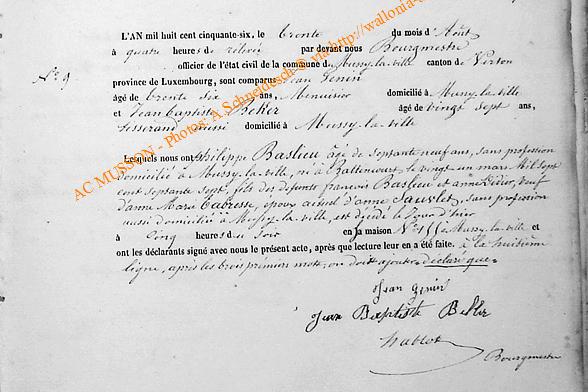 L'AN mil huit cent cinquante-six, le trente du mois d'Août
à quatre heures de relevée par devant nous Bourgmestre
officier de l'état civil de la commune de Mussy-la-ville canton de Virton
N° 9
province de Luxembourg, sont comparus Jean Genin
âgé de trente six ans, Menuisier domicilié à Mussy-la-ville
et Jean Baptiste Beker âgé de vingt sept ans,
tisserand aussi domicilié à Mussy-la-ville
Lesquels nous ont Philippe Baslieu âgé de septante neuf ans, sans profession
domicilié à Mussy-la-ville, né à Battencourt le vingt un mars Mil sept
cent septante sept, fils des defunts francois Baslieu et anne Didier, veuf
d'anne Marie époux actuel d'anne Jauvlet, sans profession
aussi domicilié à Mussy-la-ville, est décédé le jour d'hier
à Cinq heures du soir en ja maison N° 155 à Mussy-la-ville et
ont les déclarants signé avec nous le présent acte, après que lecture leur en a été faite. à la huitième
ligne, après les trois premiers mots, on doit ajouter déclaré que
Jean Genin
Jean Baptiste Beker
Bourgmestre
AC MUSSON - Photos: A Schneidesch © via http://wallonia-